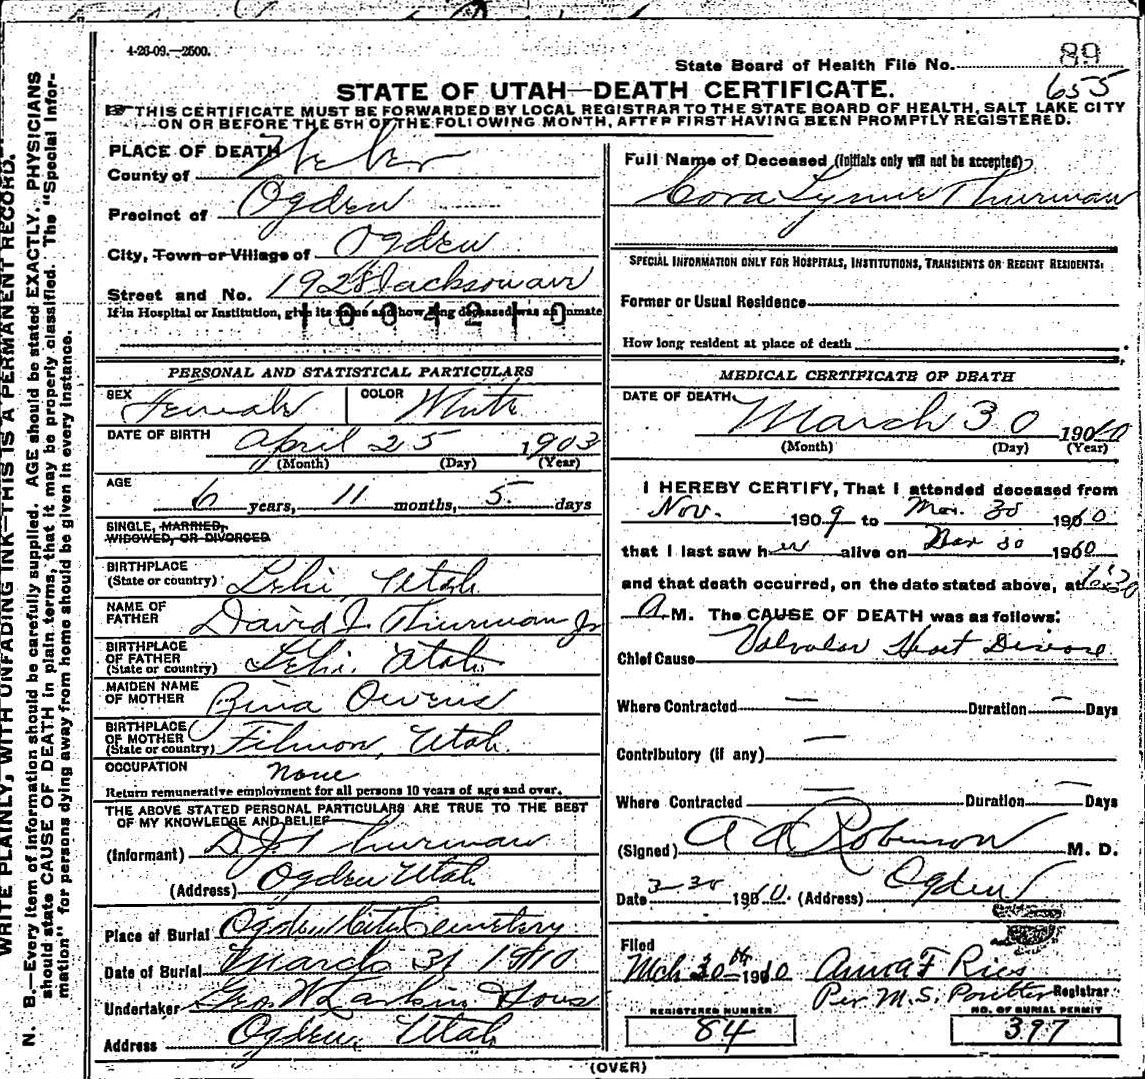 4-26-09.—2500.
State Board of Health File No. 89
655
STATE OF UTAH—DEATH CERTIFICATE.
THIS CERTIFICATE MUST BE FORWARDED BY LOCAL REGISTRAR TO THE STATE BOARD OF HEALTH, SALT LAKE CITY
ON OR BEFORE THE 5TH OF THE FOLLOWING MONTH, AFTER FIRST HAVING BEEN PROMPTLY REGISTERED.
WRITE PLAINLY, WITH UNFADING INK—THIS IS A PERMANENT RECORD.
N. B.—Every item of information should be carefully supplied. AGE should be stated EXACTLY. PHYSICIANS
should state CAUSE OF DEATH in plain terms, that it may be properly classified. The "Special Infor-
mation" for persons dying away from home should be given in every instance.
PLACE OF DEATH
County of Weber
Precinct of Ogden
City, Town or Village of Ogden
Street and No. 1928 Jackson ave
If in Hospital or Institution, give its name and how long deceased was an inmate
1004210
PERSONAL AND STATISTICAL PARTICULARS
SEX Female COLOR White
DATE OF BIRTH April 25 1903
(Month) (Day) (Year)
AGE
6 years, 11 months, 5 days
SINGLE, MARRIED,
WIDOWED, OR DIVORCED
BIRTHPLACE
(State or country) Lehi, Utah
NAME OF
FATHER David J. Thurman Jr
BIRTHPLACE
OF FATHER
(State or country) Lehi. Utah.
MAIDEN NAME
OF MOTHER Bina Owens
BIRTHPLACE
OF MOTHER
(State or country) Filmon, Utah.
OCCUPATION None
Return remunerative employment for all persons 10 years of age and over.
THE ABOVE STATED PERSONAL PARTICULARS ARE TRUE TO THE BEST
OF MY KNOWLEDGE AND BELIEF
(Informant) D J Thurman
(Address) Ogden Utah
Place of Burial Ogden City Cemetery
Date of Burial March 31 1910
Undertaker Geo. W Larkin Sons
Address Ogden, Utah
Full Name of Deceased (Initials only will not be accepted)
Cora Lynne Thurman
SPECIAL INFORMATION ONLY FOR HOSPITALS, INSTITUTIONS, TRANSIENTS OR RECENT RESIDENTS.
Former or Usual Residence
How long resident at place of death
MEDICAL CERTIFICATE OF DEATH
DATE OF DEATH March 30 1910
(Month) (Day) (Year)
I HEREBY CERTIFY, That I attended deceased from
Nov. 1909 to Mar. 30 1910
that I last saw her alive on Mar 30 1910
and that death occurred, on the date stated above, at
A M. The CAUSE OF DEATH was as follows:
Chief Cause Valvular Heart Disease
Where Contracted — Duration — Days
Contributory (if any) —
Where Contracted — Duration — Days
(Signed) Robinson M. D.
Date 3-30 1910. (Address) Ogden
Filed
Mch 30th 1910 Anna F Ries
Per M. S. Poulter Registrar
REGISTERED NUMBER
84
NO. OF BURIAL PERMIT
397
(OVER)